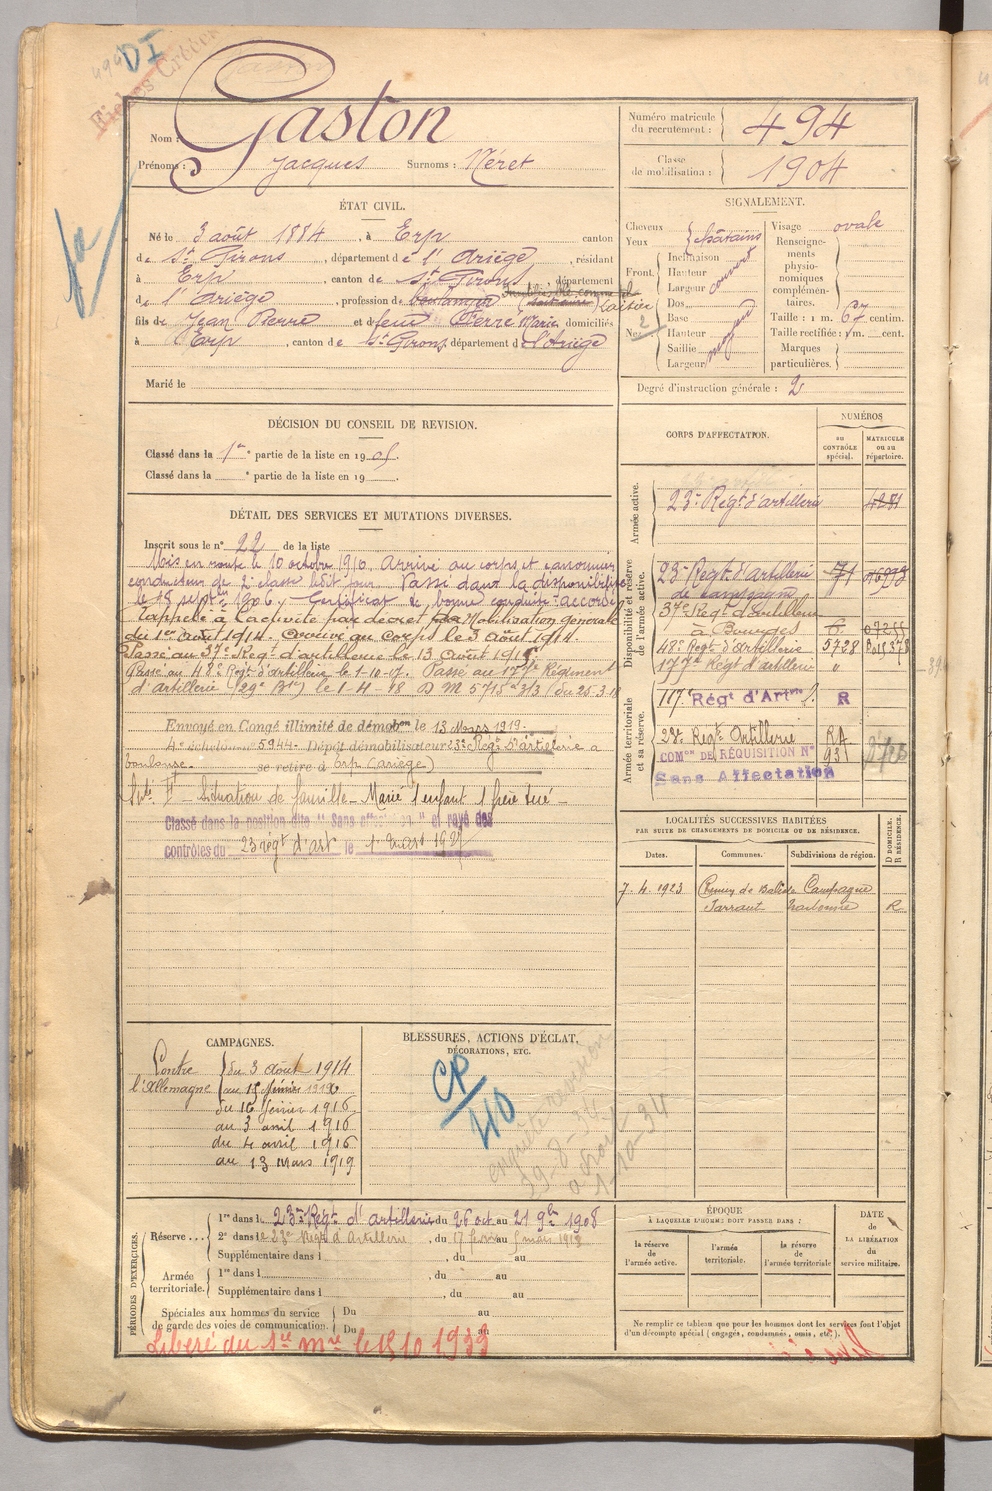 494 DI
Gaston
Nom :
Prénoms : Jacques Surnoms : Néret
Numéro matricule
du recrutement : 494
Classe
de mobilisation : 1904
ÉTAT CIVIL.
Né le 3 août 1884, à Erp canton
de St Girons, département de l'Ariège, résidant
à Erp, canton de St Girons, département
de l'Ariège, profession de boulanger laitier
fils de Jean Pierre et de feue Ferré Marie domiciliés
à Erp, canton de St Girons département de l'Ariège
Marié le
SIGNALEMENT.
Cheveux châtains
Yeux
Front Inclinaison
Hauteur couvert
Largeur
Nez Dos
Base
Hauteur moyen
Saillie
Largeur
Visage ovale
Renseigne-
ments
physio-
nomiques
complémen-
taires.
Taille : 1 m. 67 centim.
Taille rectifiée : 1 m. cent.
Marques
particulières.
Degré d'instruction générale : 2
DÉCISION DU CONSEIL DE REVISION.
Classé dans la 1re partie de la liste en 1905.
Classé dans la e partie de la liste en 19 .
DÉTAIL DES SERVICES ET MUTATIONS DIVERSES.
Inscrit sous le n° 22 de la liste
Mis en route le 10 octobre 1910. Arrivé au corps et canonnier
conducteur de 2e classe ledit jour. Passé dans la disponibilité
le 18 septbre 1906. Certificat de bonne conduite accordé
Rappelé à l'activité par décret de Mobilisation générale
du 1er août 1914. Arrivé au Corps le 3 août 1914.
Passé au 37e Régt d'artillerie le 13 août 1915.
Passé au 48e Régt d'artillerie le 1-10-17. Passé au 177e Régiment
d'artillerie (29e Bie) le 1-4-18 D M 5715 3/3 du 26-3-18
Envoyé en Congé illimité de démobon le 13 Mars 1919.
4e échelon n° 5944. Dépôt démobilisateur 23e Régt d'artillerie à
Toulouse. se retire à Erp (Ariège)
Situation de famille - Marié 1 enfant 1 frère tué -
Classé dans la position dite "Sans affectation" et rayé des
contrôles du 23 régt d'art le 1 mars 1927
CORPS D'AFFECTATION.
NUMÉROS
au
CONTRÔLE
spécial.
MATRICULE
ou au
répertoire.
Armée active.
23e Régt d'artillerie 4281
Disponibilité et réserve
de l'armée active.
23e Régt d'artillerie 71
de campagne
37e Régt d'artillerie
à Bourges 07255
48e Régt d'artillerie 5728
177e Régt d'artillerie "
Armée territoriale
et sa réserve.
117e Régt d'Artie R
28e Régt Artillerie RA
COMon DE RÉQUISITION N° 931
Sans Affectation
LOCALITÉS SUCCESSIVES HABITÉES
PAR SUITE DE CHANGEMENTS DE DOMICILE OU DE RÉSIDENCE.
Dates. Communes. Subdivisions de région. D DOMICILE. R RÉSIDENCE.
7.4.1923 Campagne
Narbonne R
CAMPAGNES.
Contre
l'Allemagne
du 3 août 1914
au 15 février 1916
du 16 février 1916
au 3 avril 1916
du 4 avril 1916
au 13 mars 1919
BLESSURES, ACTIONS D'ÉCLAT,
DÉCORATIONS, ETC.
CP
410
PÉRIODES D'EXERCICES.
Réserve . . . 1re dans le 23e Régt d'artillerie du 26 oct au 21 9bre 1908
2e dans le 23e Régt d'Artillerie, du 17 février au 5 mars 1912
Supplémentaire dans l , du au
Armée
territoriale. 1re dans l , du au
Supplémentaire dans l , du au
Spéciales aux hommes du service
de garde des voies de communication. Du au
Du au
Libéré du 1er mre le 15 10 1939
ÉPOQUE
À LAQUELLE L'HOMME DOIT PASSER DANS :
la réserve
de l'armée active.
l'armée
territoriale.
la réserve
de l'armée territoriale
DATE
de
LA LIBÉRATION
du
service militaire.
Ne remplir ce tableau que pour les hommes dont les services font l'objet
d'un décompte spécial (engagés, condamnés, omis, etc.).